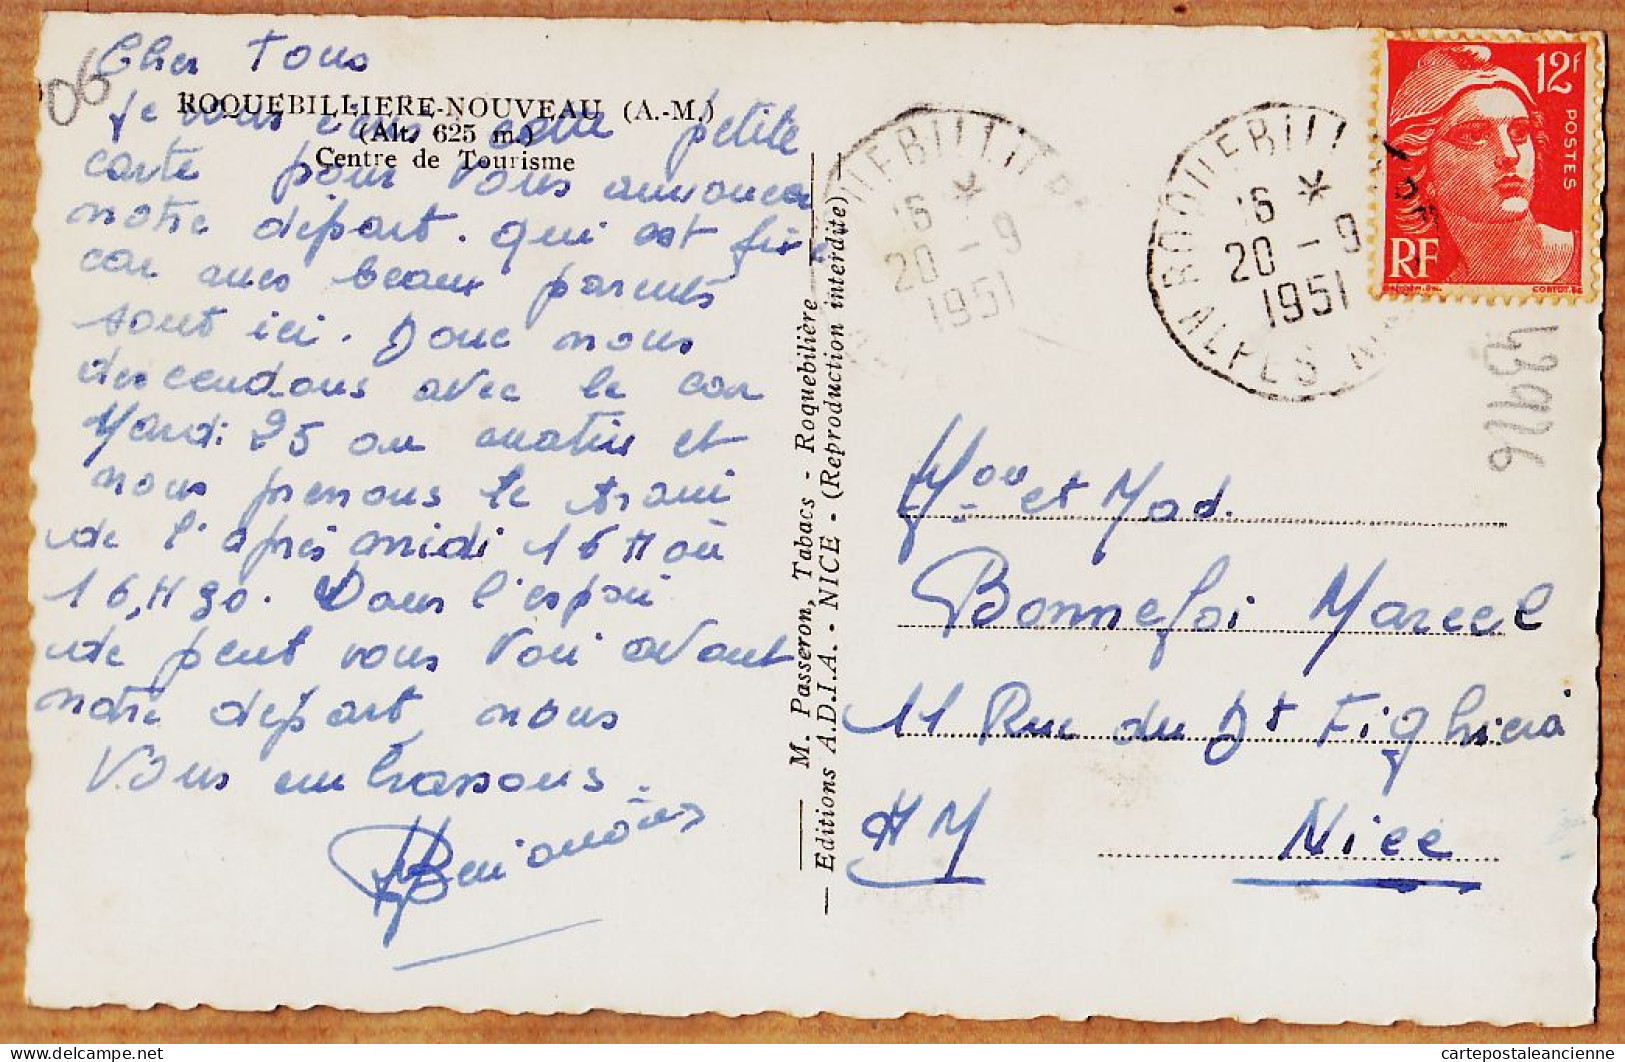 Cher Tous
06
ROQUEBILLIERE-NOUVEAU (A.-M.)
(Alt. 625 m.)
Centre de Tourisme
Je vous cette petite
carte pour vous annoncer
notre départ. qui est fixé
car mes beaux parents
sont ici. Donc nous
descendons avec le car
Mardi 25 au matin et
nous prenons le train
de l'après midi 16 H ou
16,H30. Dans l'espoir
de peut vous voir avant
notre départ, nous
Vous embrassons.
M. Passeron, Tabacs - Roquebilière
Editions A.D.I.A. - NICE - (Reproduction interdite)
16 *
20 - 9
1951
ROQUEBILLIERE
16 *
20 - 9
1951
ALPES MMES
12F
POSTES
RF
Mor et Mad.
Bonnefoi Marcel
11 Rue du Dt Fighiera
AM Nice
cartepostaleancienne